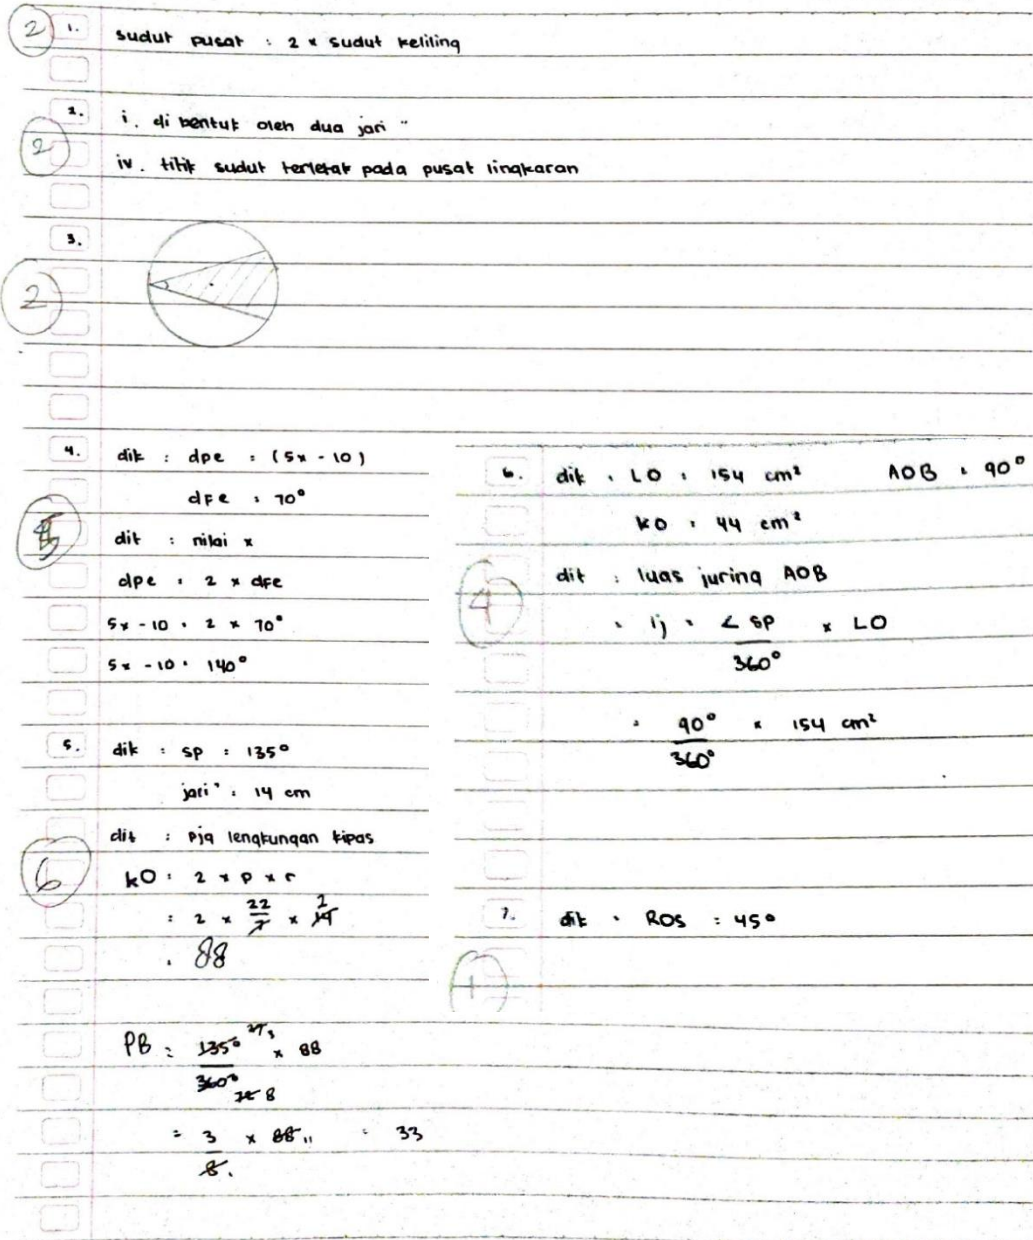 2 1. sudut pusat : 2 x sudut keliling
2. i. di bentuk oleh dua jari "
2 iv. titik sudut terletak pada pusat lingkaran
3.
2
4. dik : dpe : (5x - 10)
dfe : 70°
dit : nilai x
dpe : 2 x dfe
5x - 10 : 2 x 70°
5x - 10 : 140°
5. dik : sp : 135°
jari" : 14 cm
dit : pjg lengkungan kipas
6 kO : 2 x p x r
: 2 x 22/7 x 14 2
: 88
PB : 135° 27 3 / 360° 72 8 x 88
= 3/8 x 88 11 : 33
6. dik : LO : 154 cm² AOB : 90°
kO : 44 cm²
dit : luas juring AOB
4 : lj : ∠ sp / 360° x LO
: 90° / 360° x 154 cm²
7. dik : ROS : 45°
1